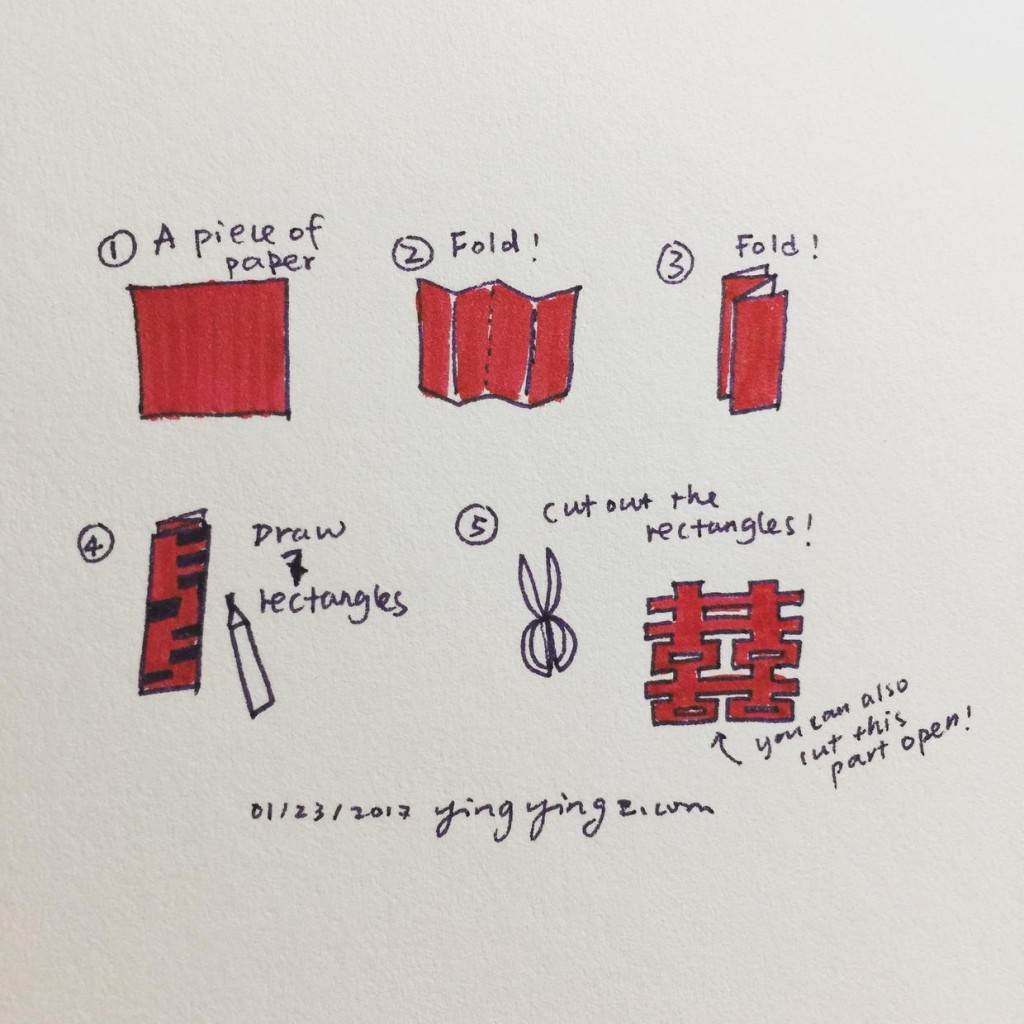 ① A piece of
paper
② Fold!
③ Fold!
④ Draw
7
rectangles
⑤ cut out the
rectangles!
囍
you can also
cut this
part open!
01/23/2017 yingyingz.com